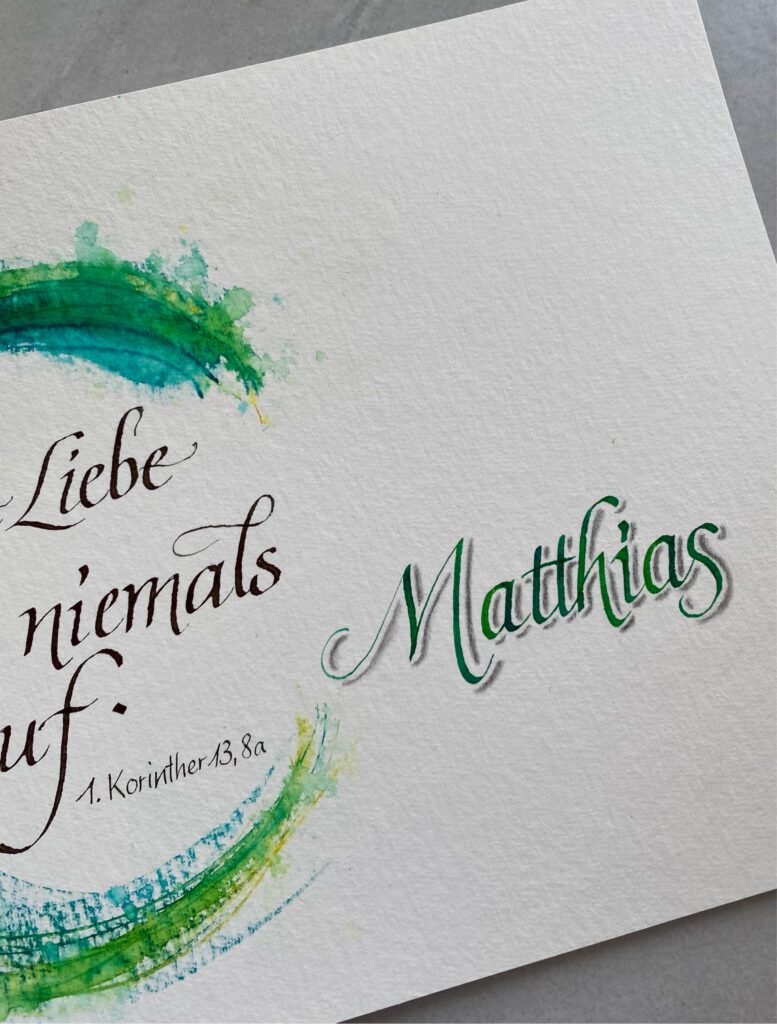 Liebe
niemals
uf.
1. Korinther 13, 8a
Matthias